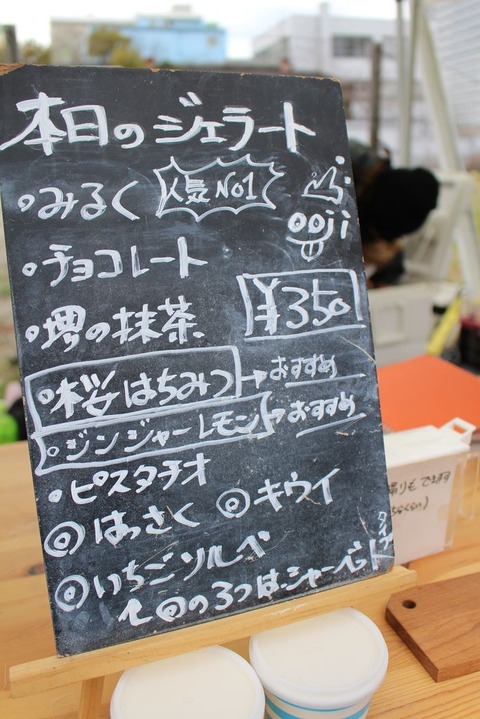 本日のジェラート
・みるく 人気No1
ooji
・チョコレート
・堺の抹茶 ¥350
・桜はちみつ→おすすめ
・ジンジャーレモン→おすすめ
・ピスタチオ
◎はっさく ◎キウイ
◎いちごソルベ
◎の3つは、シャーベット
タイプ